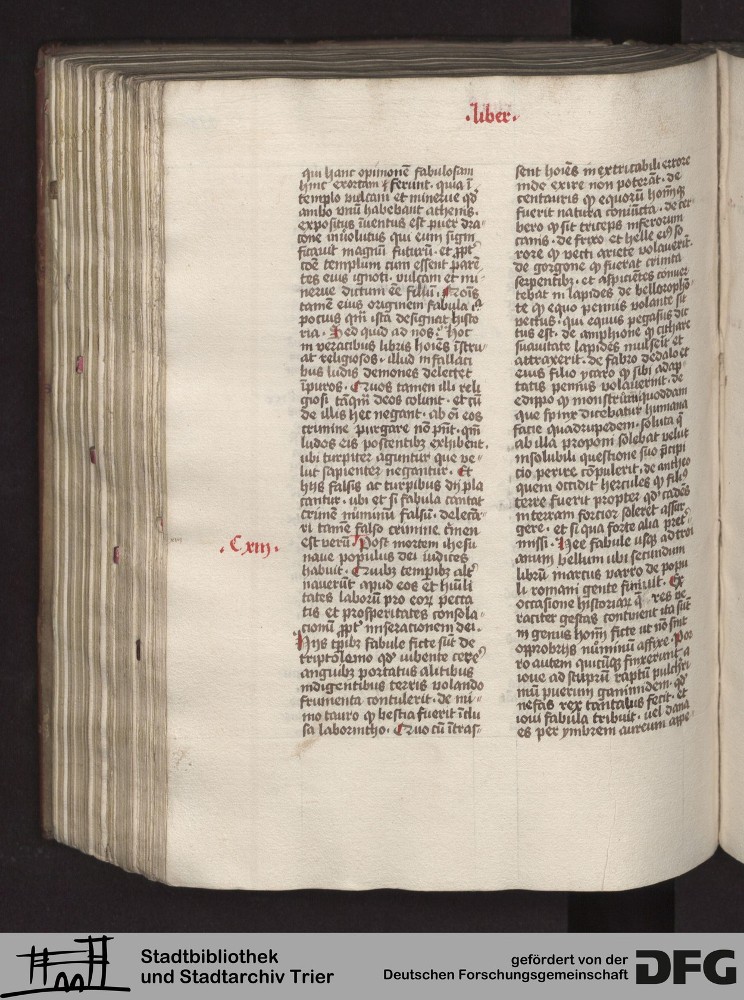 ·liber·
qui hanc opinionē fabulosam
hinc exortam ee ferunt. quia ī
templo vulcani et minerue qd
ambo vnū habebant athenis.
expositus īuentus est puer dra-
cone inuolutus qui eum signi
ficauit magnū futurū. et ꝓpt'
cōe templum cum essent paren
tes eius ignoti. vulcani et mi-
nerue dictum ēe filiū. Erois
tamē eius originem fabula
pocius qm̄ ista designat histo
ria. Sed quid ad nos? hoc
in veracibus libris hoīes īstru-
at religiosos. illud in fallaci
bus ludis demones delectet
īpuros. Quos tamen illi reli
giosi tāqm̄ deos colunt. et cū
de illis hec negant. ab oī eos
crimine purgare nō pn̄t. qm̄
ludos eis postentibꝫ exhibent.
ubi turpiter aguntur que ve-
lut sapienter negantur. Et
hijs falsis ac turpibus dij pla
cantur. ubi et si fabula cantat
crimē niminū falsū. delecta-
ri tamē falso crimine. c̄men
est verū. Post mortem ihesu
·Cxiij.
naue populus dei iudices
habuit. Quibꝫ temꝑibꝫ alt'
nauerūt apud eos et hūili
tates laborū pro eorꝫ pecca
tis et prosperitates consola-
cionū ꝓpt' miseracionem dei.
Hijs tꝑibꝫ fabule ficte sūt de
triptolomo qd' iubente cere9
anguibꝫ portatus alitibus
indigentibus terris volando
frumenta contulerit. de mi-
no tauro qꝫ bestia fuerit īclu
sa laborintho. Quo cū ītras-
sent hoīes inextricabili errore
inde exire non poterāt. de
centauris qꝫ equorū hoīmqꝫ
fuerit natura coniūcta. de cer
bero qꝫ sit triceps inferorum
canis. de frixo et helle ei9 so
rore qꝫ vecti ariete volauerīt.
de gorgone qꝫ fuerat crinita
serpentibꝫ. et aspicientes conuer
tebat in lapides. de bellorophō-
te qꝫ equo pennis volante sit
vectus. qui equus pegasus dic
tus est. de amphione qꝫ cithare
suauitate lapides mulserit et
attraxerit. de fabro dedalo et
eius filio ycaro qꝫ sibi adap
tatis pennis volauerint. de
edippo qꝫ monstrum quoddam
que spinx dicebatur humana
facie quadrupedem. soluta q̄
ab illa proponi solebat velut
insolubili questione suo p̄cipi
cio perire cōpulerit. de antheo
quem occidit hercules qꝫ fili9
terre fuerit propter qd' cadēs
in terram forcior soleret assur
gere. et si qua forte alia pret'
missi. Hee fabule usqꝫ ad troi
anum bellum ubi secundum
librū marcus varro de popu
li romani gente finiuit. Ex
occasione historiarꝫ q̄ res ve
raciter gestas continent ita sūt
in genus hoīm ficte ut nō sint
opprobrijs nūminū affixe. Por
ro autem quicūqꝫ finxerunt a
ioue ad stuprū raptū pulchri
mū puerum ganimidem. qd'
nefas rex tantalus fecit. et
ioui fabula tribuit. vel dana
es per ymbrem aureum appe
Stadtbibliothek
und Stadtarchiv Trier
gefördert von der
Deutschen Forschungsgemeinschaft
DFG